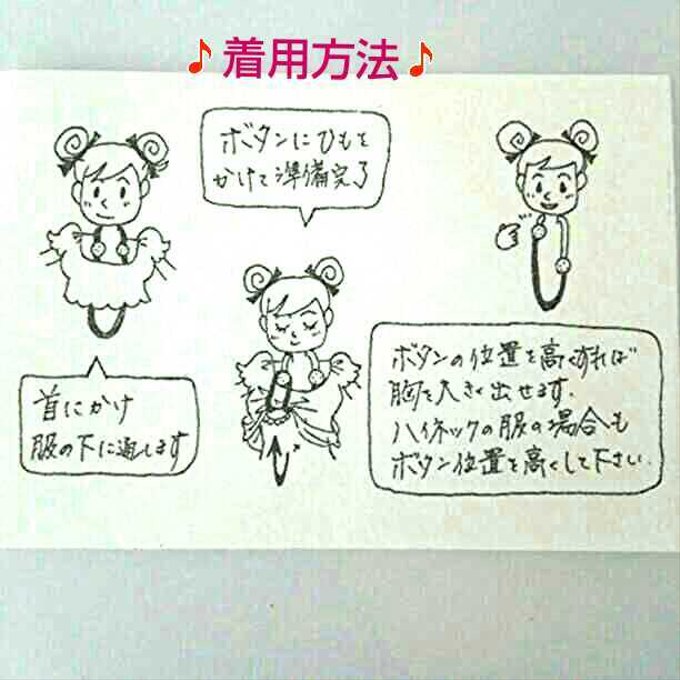 ♪着用方法♪
ボタンにひもを
かけて準備完了
首にかけ
服の下に通します
ボタンの位置を高くすれば
胸を大きく出せます.
ハイネックの服の場合も
ボタン位置を高くして下さい.